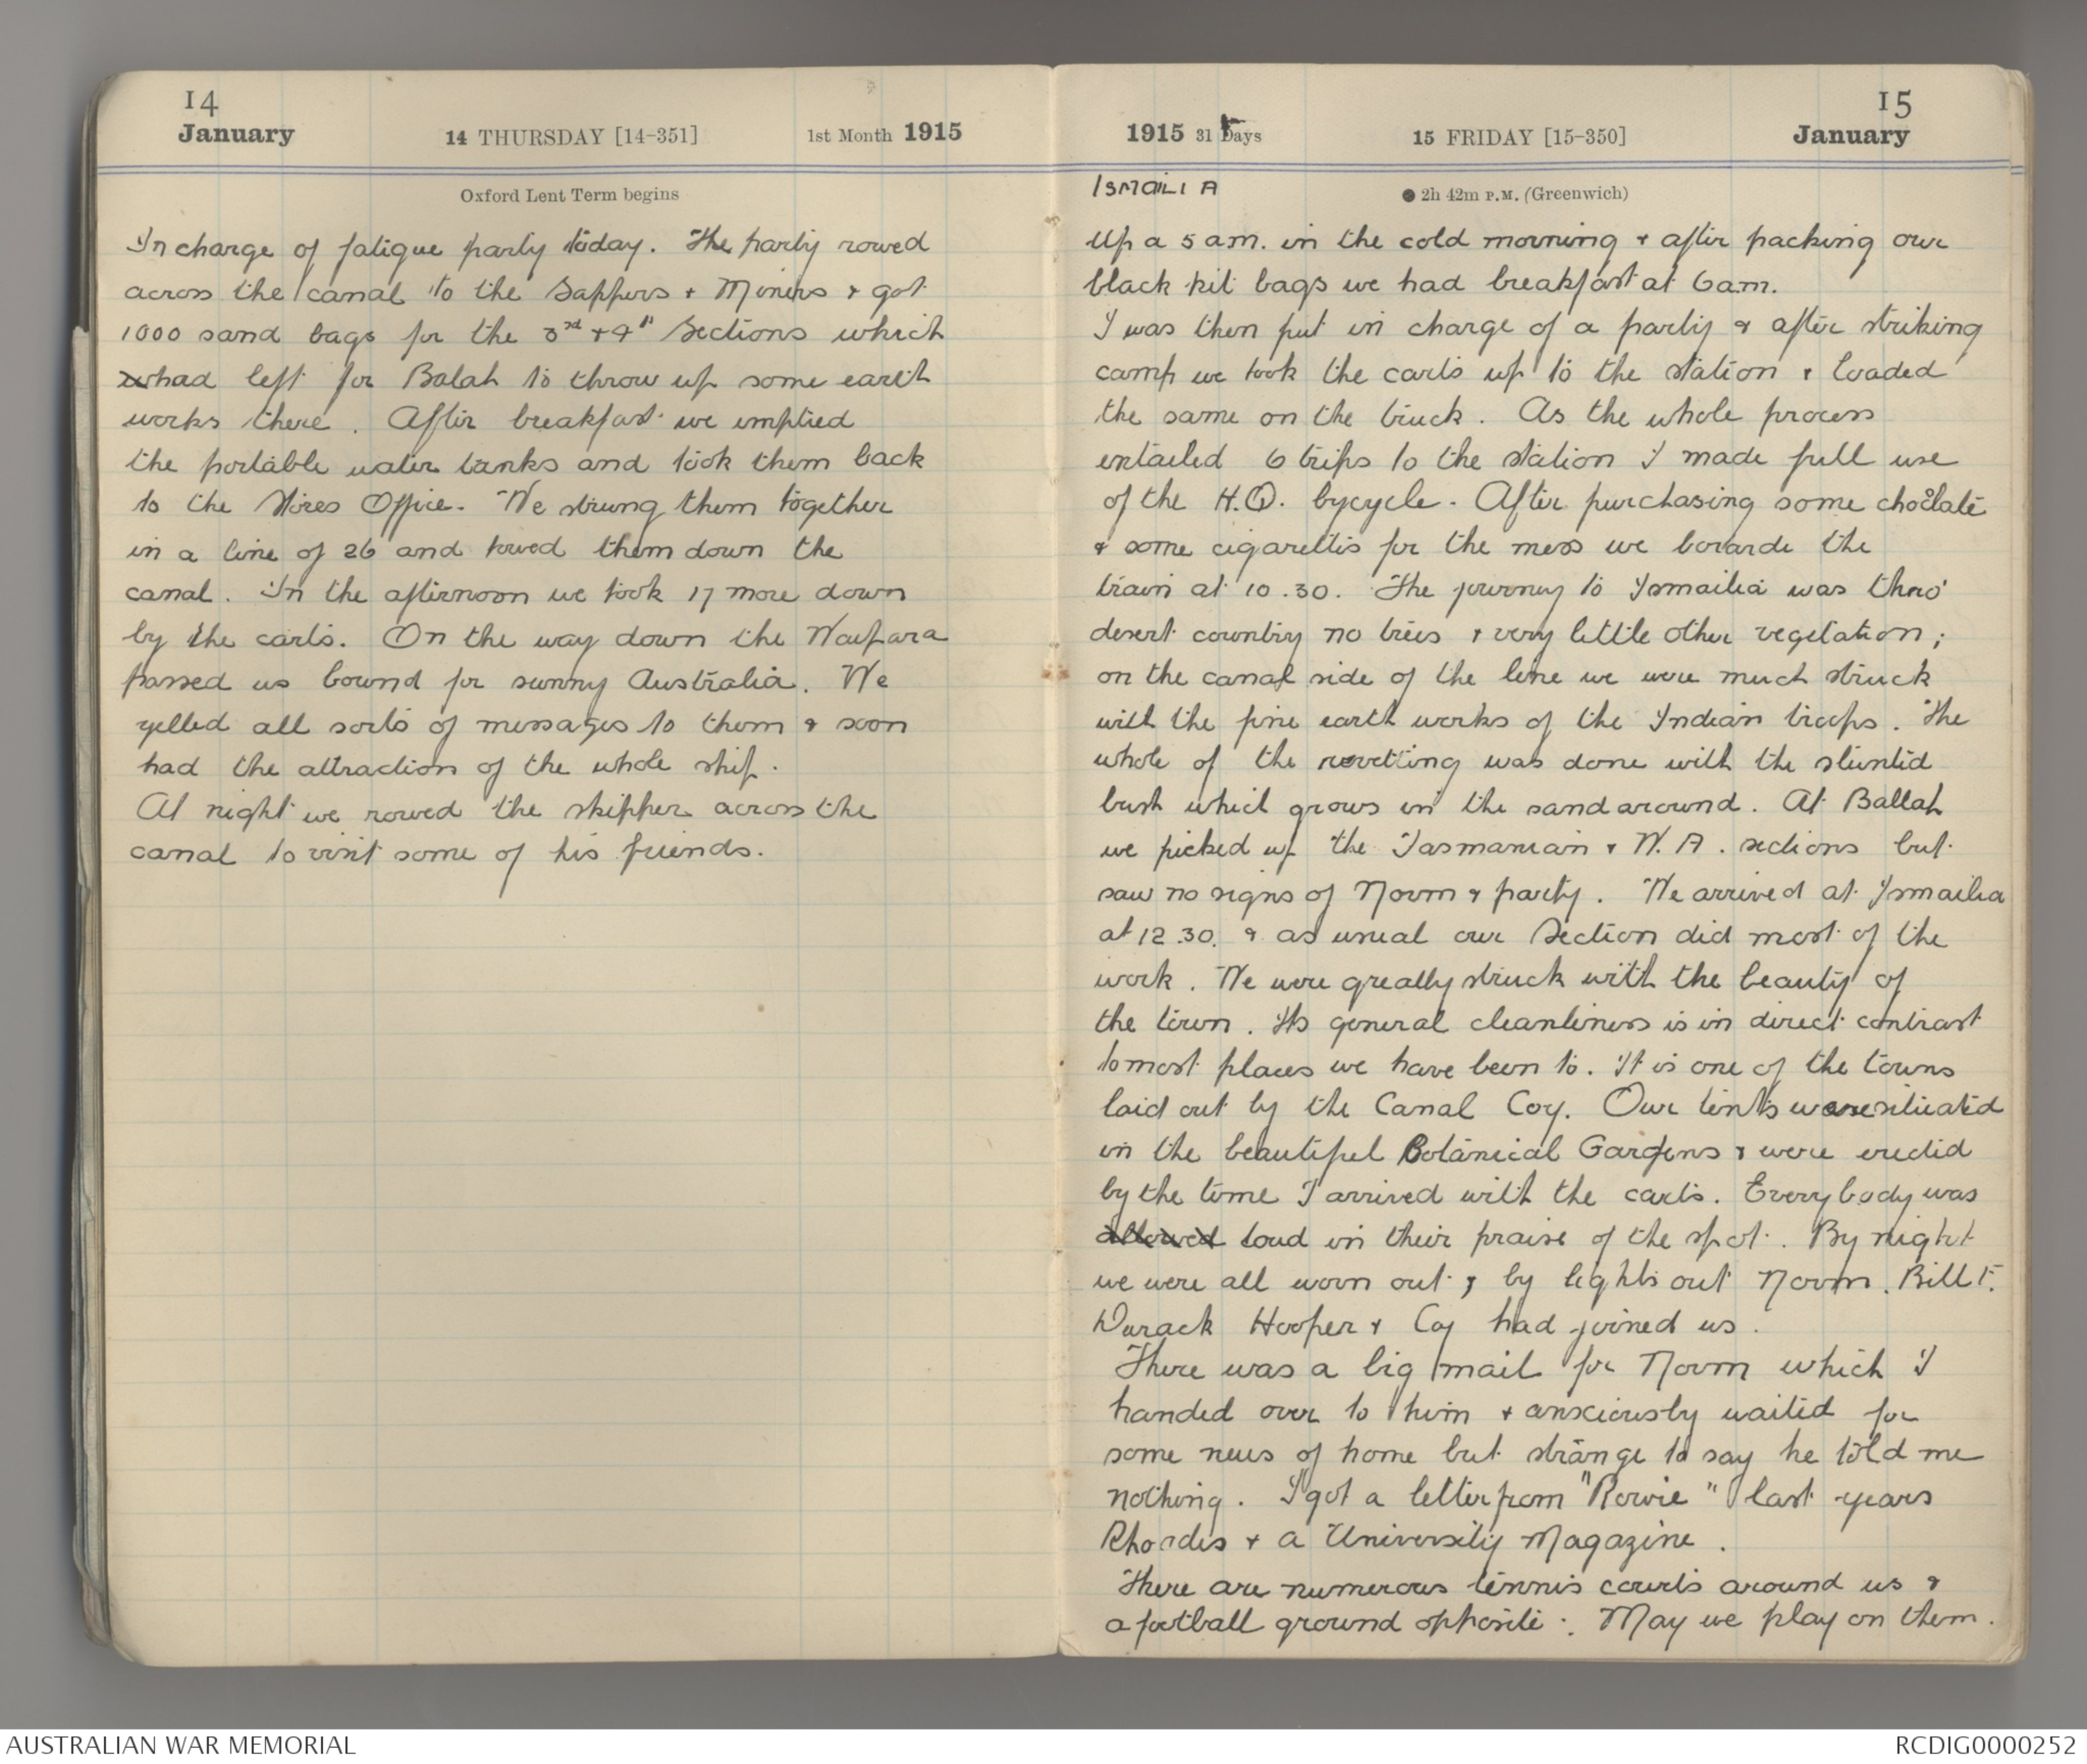 14
January
14 THURSDAY [14-351]
1st Month 1915
Oxford Lent Term begins
In charge of fatigue party today. The party rowed
across the canal to the Sappers & Miners & got
1000 sand bags for the 3rd & 4th Sections which
had left for Balah to throw up some earth
works there. After breakfast we emptied
the portable water tanks and took them back
to the Stores Office. We strung them together
in a line of 26 and towed them down the
canal. In the afternoon we took 17 more down
by the carts. On the way down the Waipara
passed us bound for sunny Australia. We
yelled all sorts of messages to them & soon
had the attraction of the whole ship.
At night we rowed the skipper across the
canal to visit some of his friends.
15
1915 31 Days
15 FRIDAY [15-350]
January
ISMAILIA
● 2h 42m P.M. (Greenwich)
Up a 5 am. in the cold morning & after packing our
black kit bags we had breakfast at 6 a.m.
I was then put in charge of a party & after striking
camp we took the carts up to the station & loaded
the same on the truck. As the whole process
entailed 6 trips to the station I made full use
of the H.Q. bycycle. After purchasing some choclate
& some cigarettes for the mess we borarde the
train at 10.30. The journey to Ismailia was thro'
desert country no trees & very little other vegetation;
on the canal side of the line we were much struck
with the fine earth works of the Indian troops. The
whole of the revetting was done with the stunted
bush which grows in the sand around. At Ballah
we picked up the Tasmanian & W.A. sections but
saw no signs of Norm & party. We arrived at Ismailia
at 12.30. & as usual our Section did most of the
work. We were greatly struck with the beauty of
the town. Its general cleanliness is in direct contrast
to most places we have been to. It is one of the towns
laid out by the Canal Coy. Our tents were situated
in the beautiful Botanical Gardens & were erected
by the time I arrived with the carts. Everybody was
allowed loud in their praise of the spot. By night
we were all worn out & by lights out Norm. Bill F.
Durack Hooper & Coy had joined us.
There was a big mail for Norm which I
handed over to him & anxciously waited for
some news of home but strange to say he told me
nothing. I got a letter from "Rowie" last years
Rhordes & a University Magazine.
There are numerous tennis courts around us &
a football ground opposite. May we play on them.
AUSTRALIAN WAR MEMORIAL
RCDIG0000252